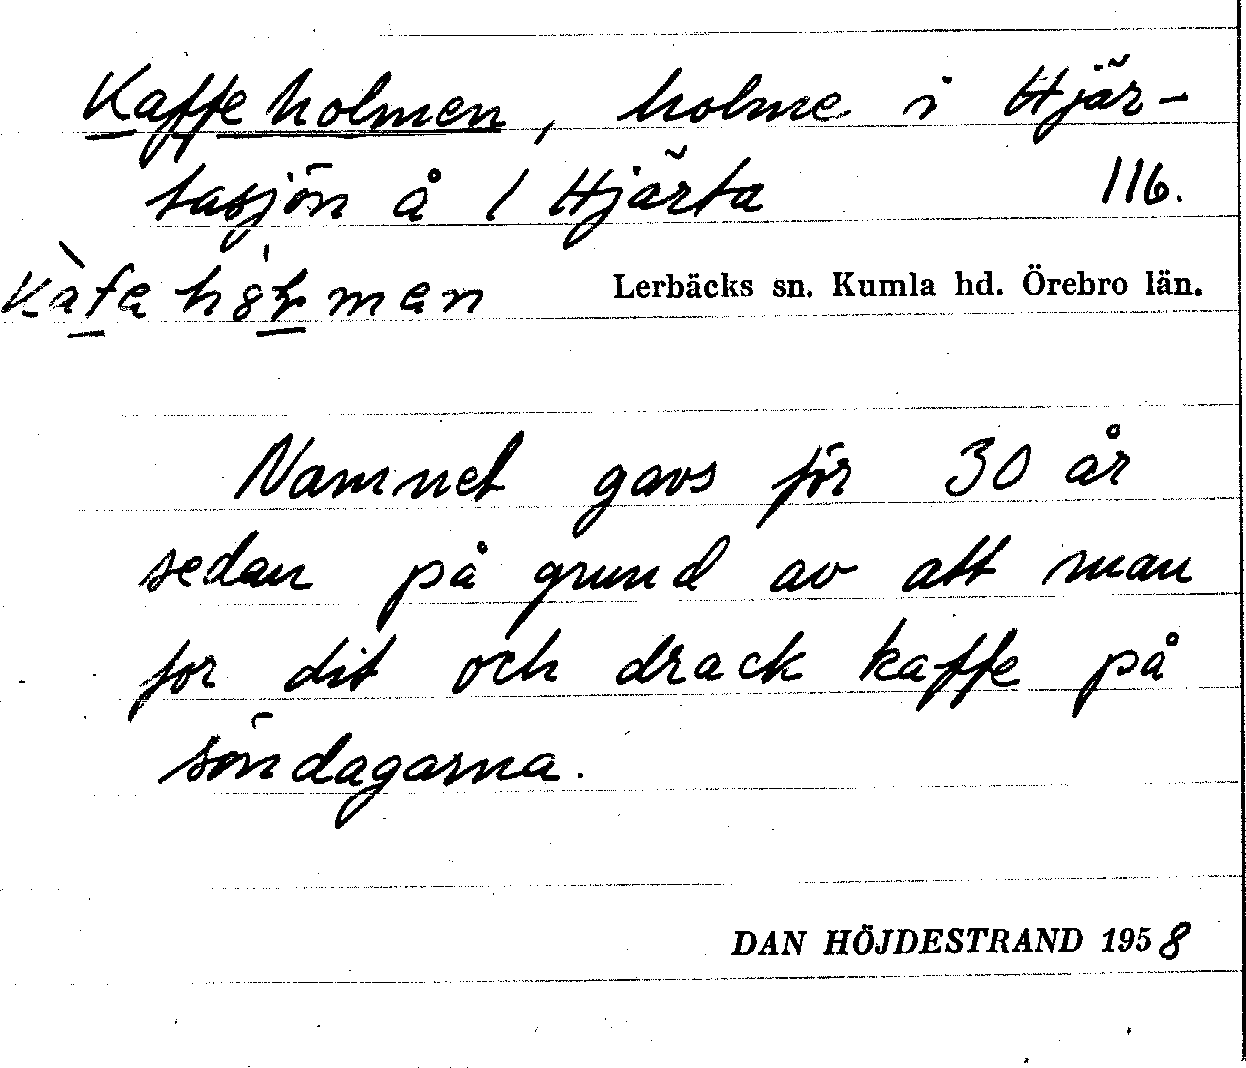 Kaffeholmen, holme i Hjär-
tasjön å 1 Hjärta 116.
Lerbäcks sn. Kumla hd. Örebro län.
Namnet gavs för 30 år
sedan på grund av att man
for dit och drack kaffe på
söndagarna.
DAN HÖJDESTRAND 1958